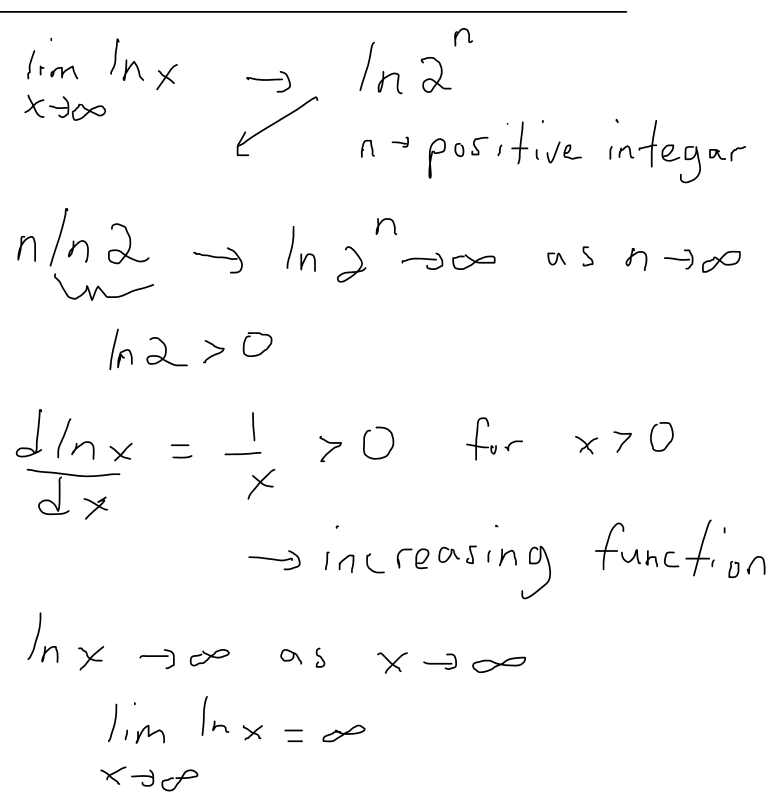 lim ln x → ln 2^n
x→∞
n → positive integar
n ln 2 → ln 2^n → ∞ as n → ∞
ln 2 > 0
d ln x / dx = 1/x > 0 for x > 0
→ increasing function
ln x → ∞ as x → ∞
lim ln x = ∞
x→∞